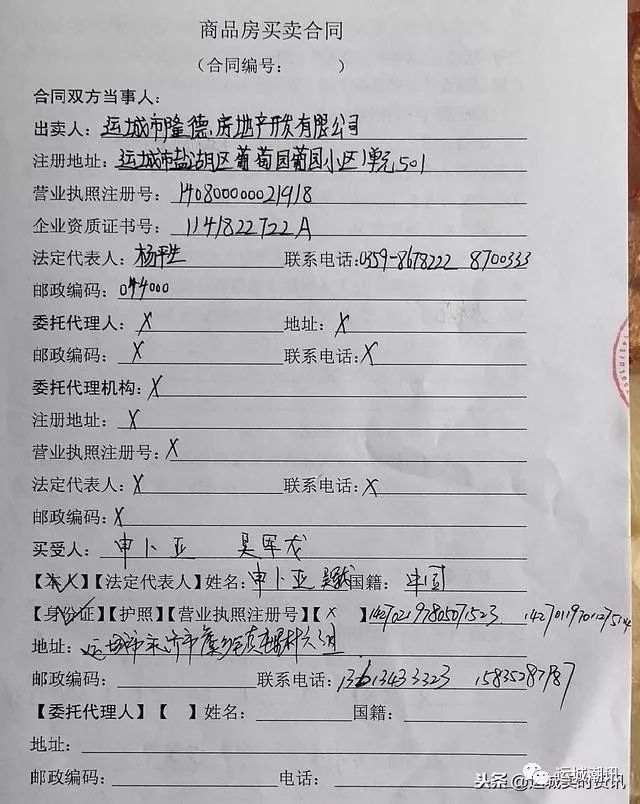 商品房买卖合同
（合同编号： ）
合同双方当事人：
出卖人：运城市隆德房地产开发有限公司
注册地址：运城市盐湖区葡萄园葡园小区1单元501
营业执照注册号：140800000021918
企业资质证书号：1141822722A
法定代表人：杨平生 联系电话：0359-8678222 8700333
邮政编码：044000
委托代理人：X 地址：X
邮政编码：X 联系电话：X
委托代理机构：X
注册地址：X
营业执照注册号：X
法定代表人：X 联系电话：X
邮政编码：X
买受人：申卜亚 吴军戈
【本人】【法定代表人】姓名：申卜亚 国籍：中国
【身份证】【护照】【营业执照注册号】【X】
地址：运城市永济市
邮政编码： 联系电话：13613433323 15835287787
【委托代理人】【 】姓名： 国籍：
地址：
邮政编码： 电话：
运城潮讯
头条@运城买的资讯